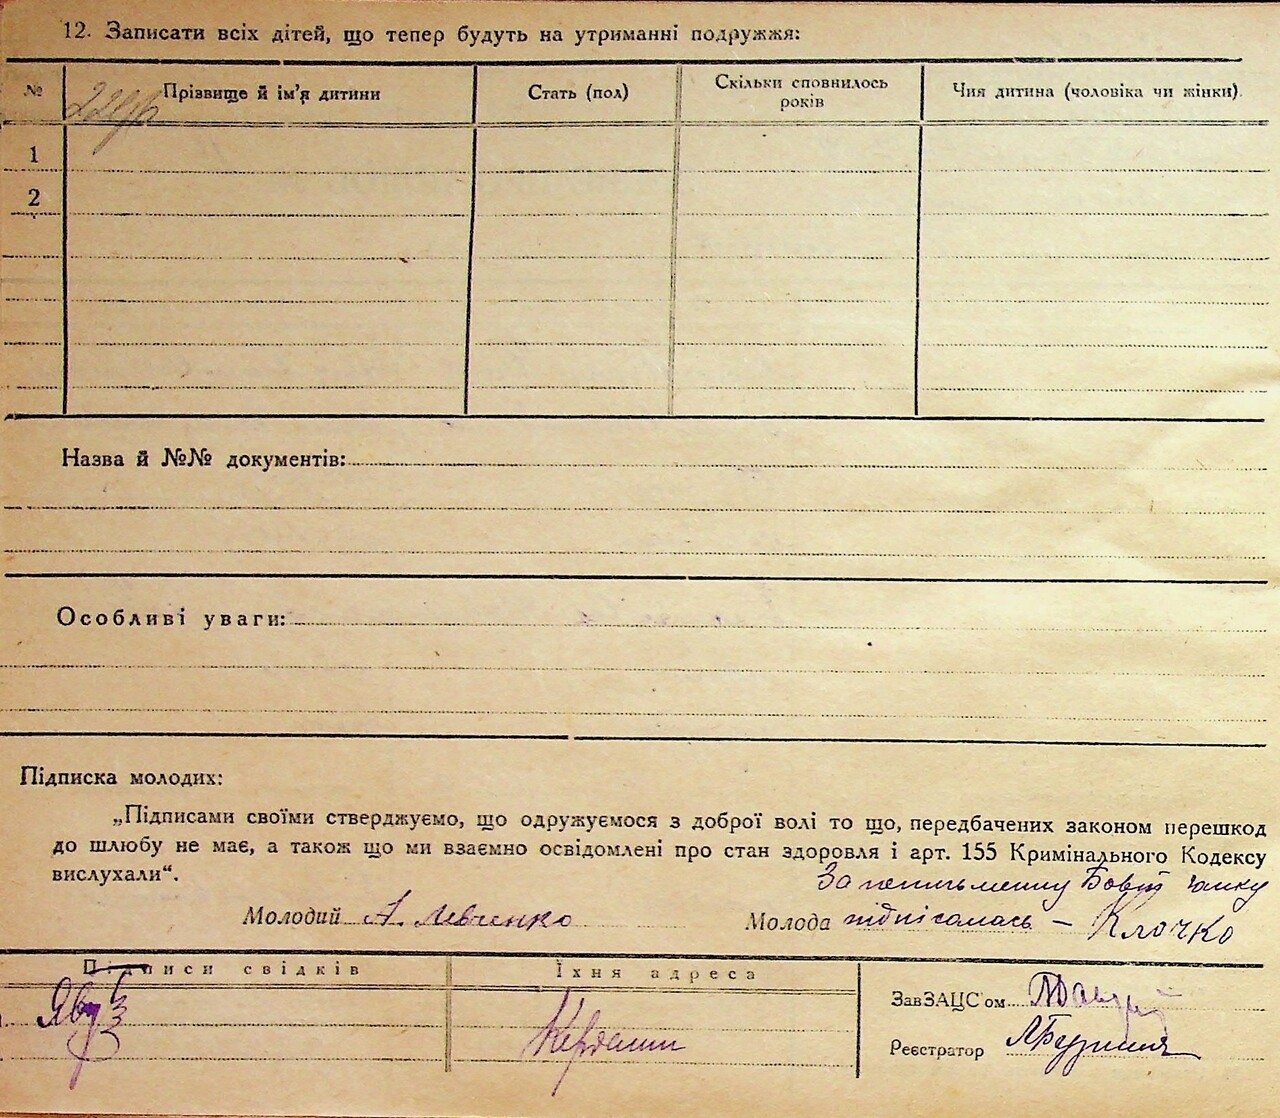 12. Записати всіх дітей, що тепер будуть на утриманні подружжя:
№ Прізвище й ім'я дитини Стать (пол) Скільки сповнилось років Чия дитина (чоловіка чи жінки)
1
2
Назва й №№ документів:
Особливі уваги:
Підписка молодих:
„Підписами своїми стверджуємо, що одружуємося з доброї волі то що, передбачених законом перешкод
до шлюбу не має, а також що ми взаємно освідомлені про стан здоровля і арт. 155 Кримінального Кодексу
вислухали“.
За
Молодий А. Левченко Молода підпісалась — Клочко
Підписи свідків Їхня адреса
ЗавЗАЦС'ом
Реєстратор